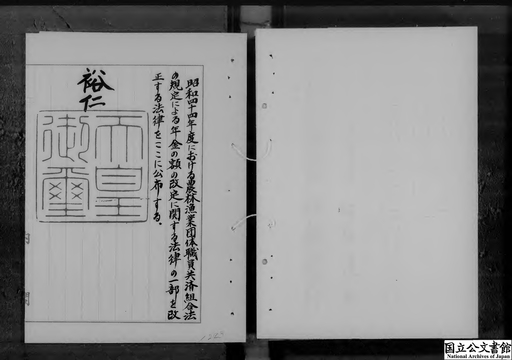 昭和四十四年度における農林漁業団体職員共済組合法
の規定による年金の額の改定に関する法律の一部を改
正する法律をここに公布する。
裕仁
天皇
御璽
国立公文書館
National Archives of Japan